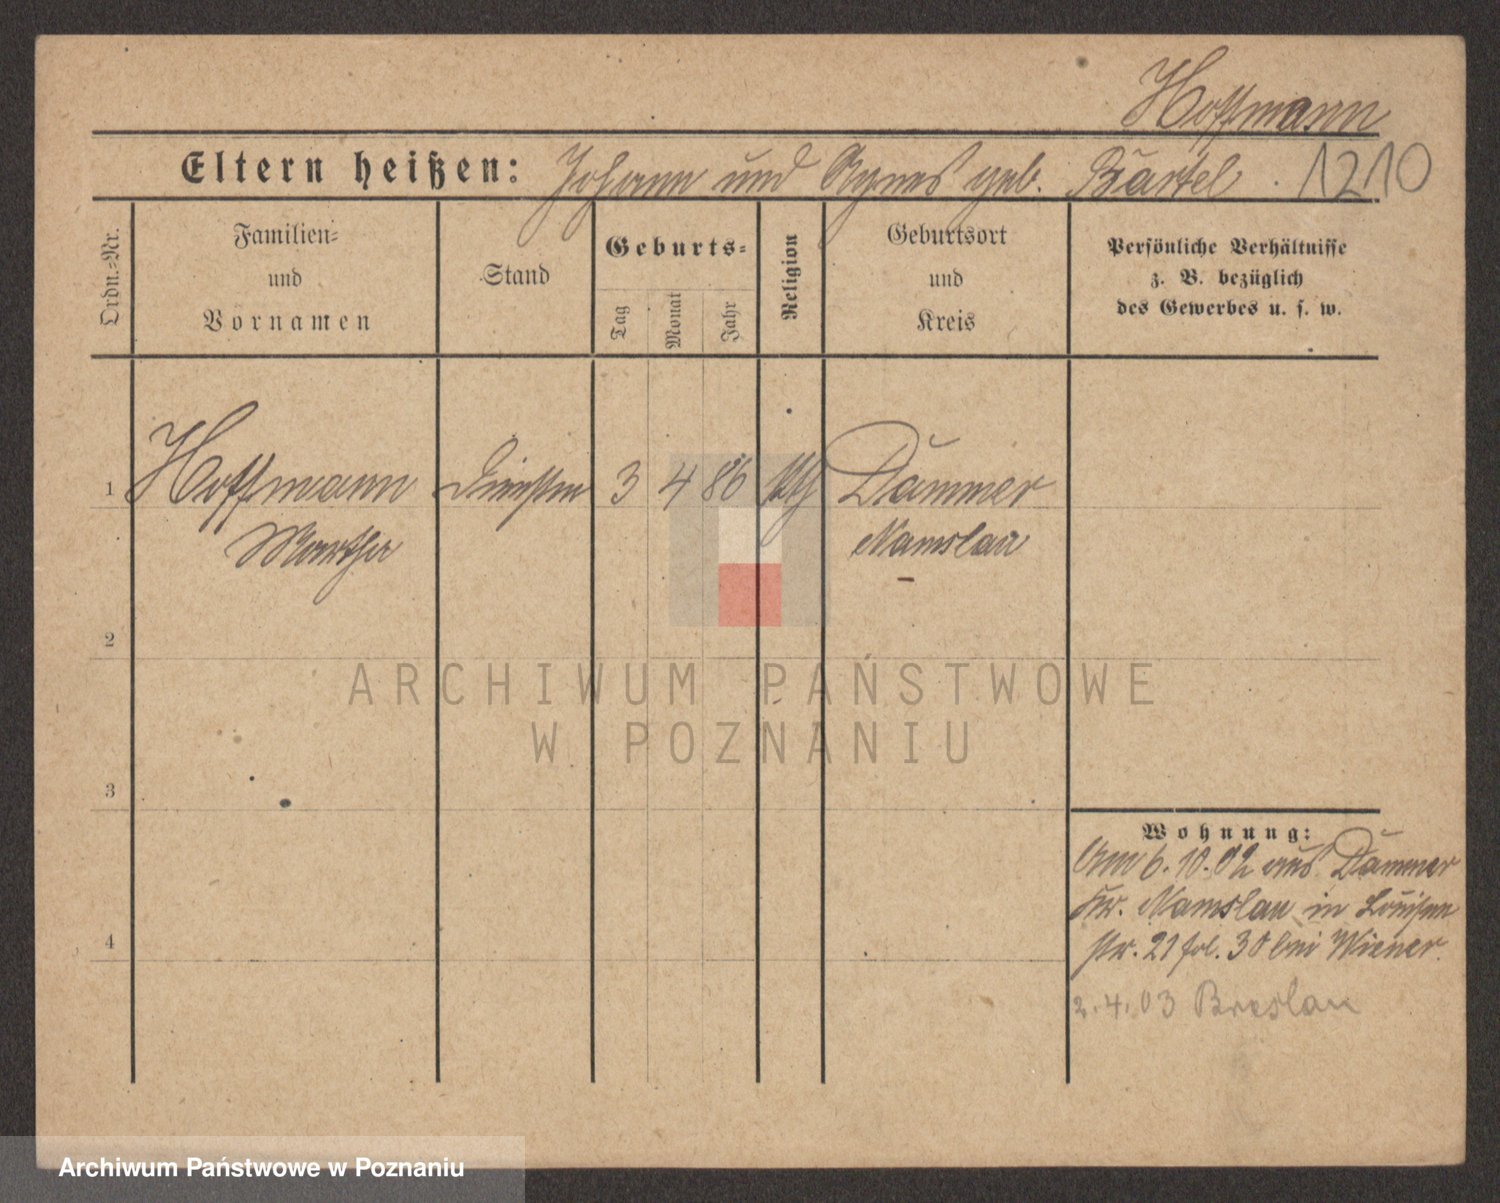 Hoffmann
Eltern heißen: Johann und Agnes geb. Bartel. 1210
Ordn.-Nr.
Familien-
und
Vornamen
Stand
Geburts-
Tag
Monat
Jahr
Religion
Geburtsort
und
Kreis
Persönliche Verhältnisse
z. B. bezüglich
des Gewerbes u. s. w.
1 Hoffmann 3 4 86 Dammer
Martha Namslau
2
3
4
Wohnung:
Am 6.10.02 aus Dammer
Kr. Namslau in Louisen
str. 21 fol. 30 bei Wiener.
2.4.03 Breslau
ARCHIWUM PAŃSTWOWE
W POZNANIU
Archiwum Państwowe w Poznaniu